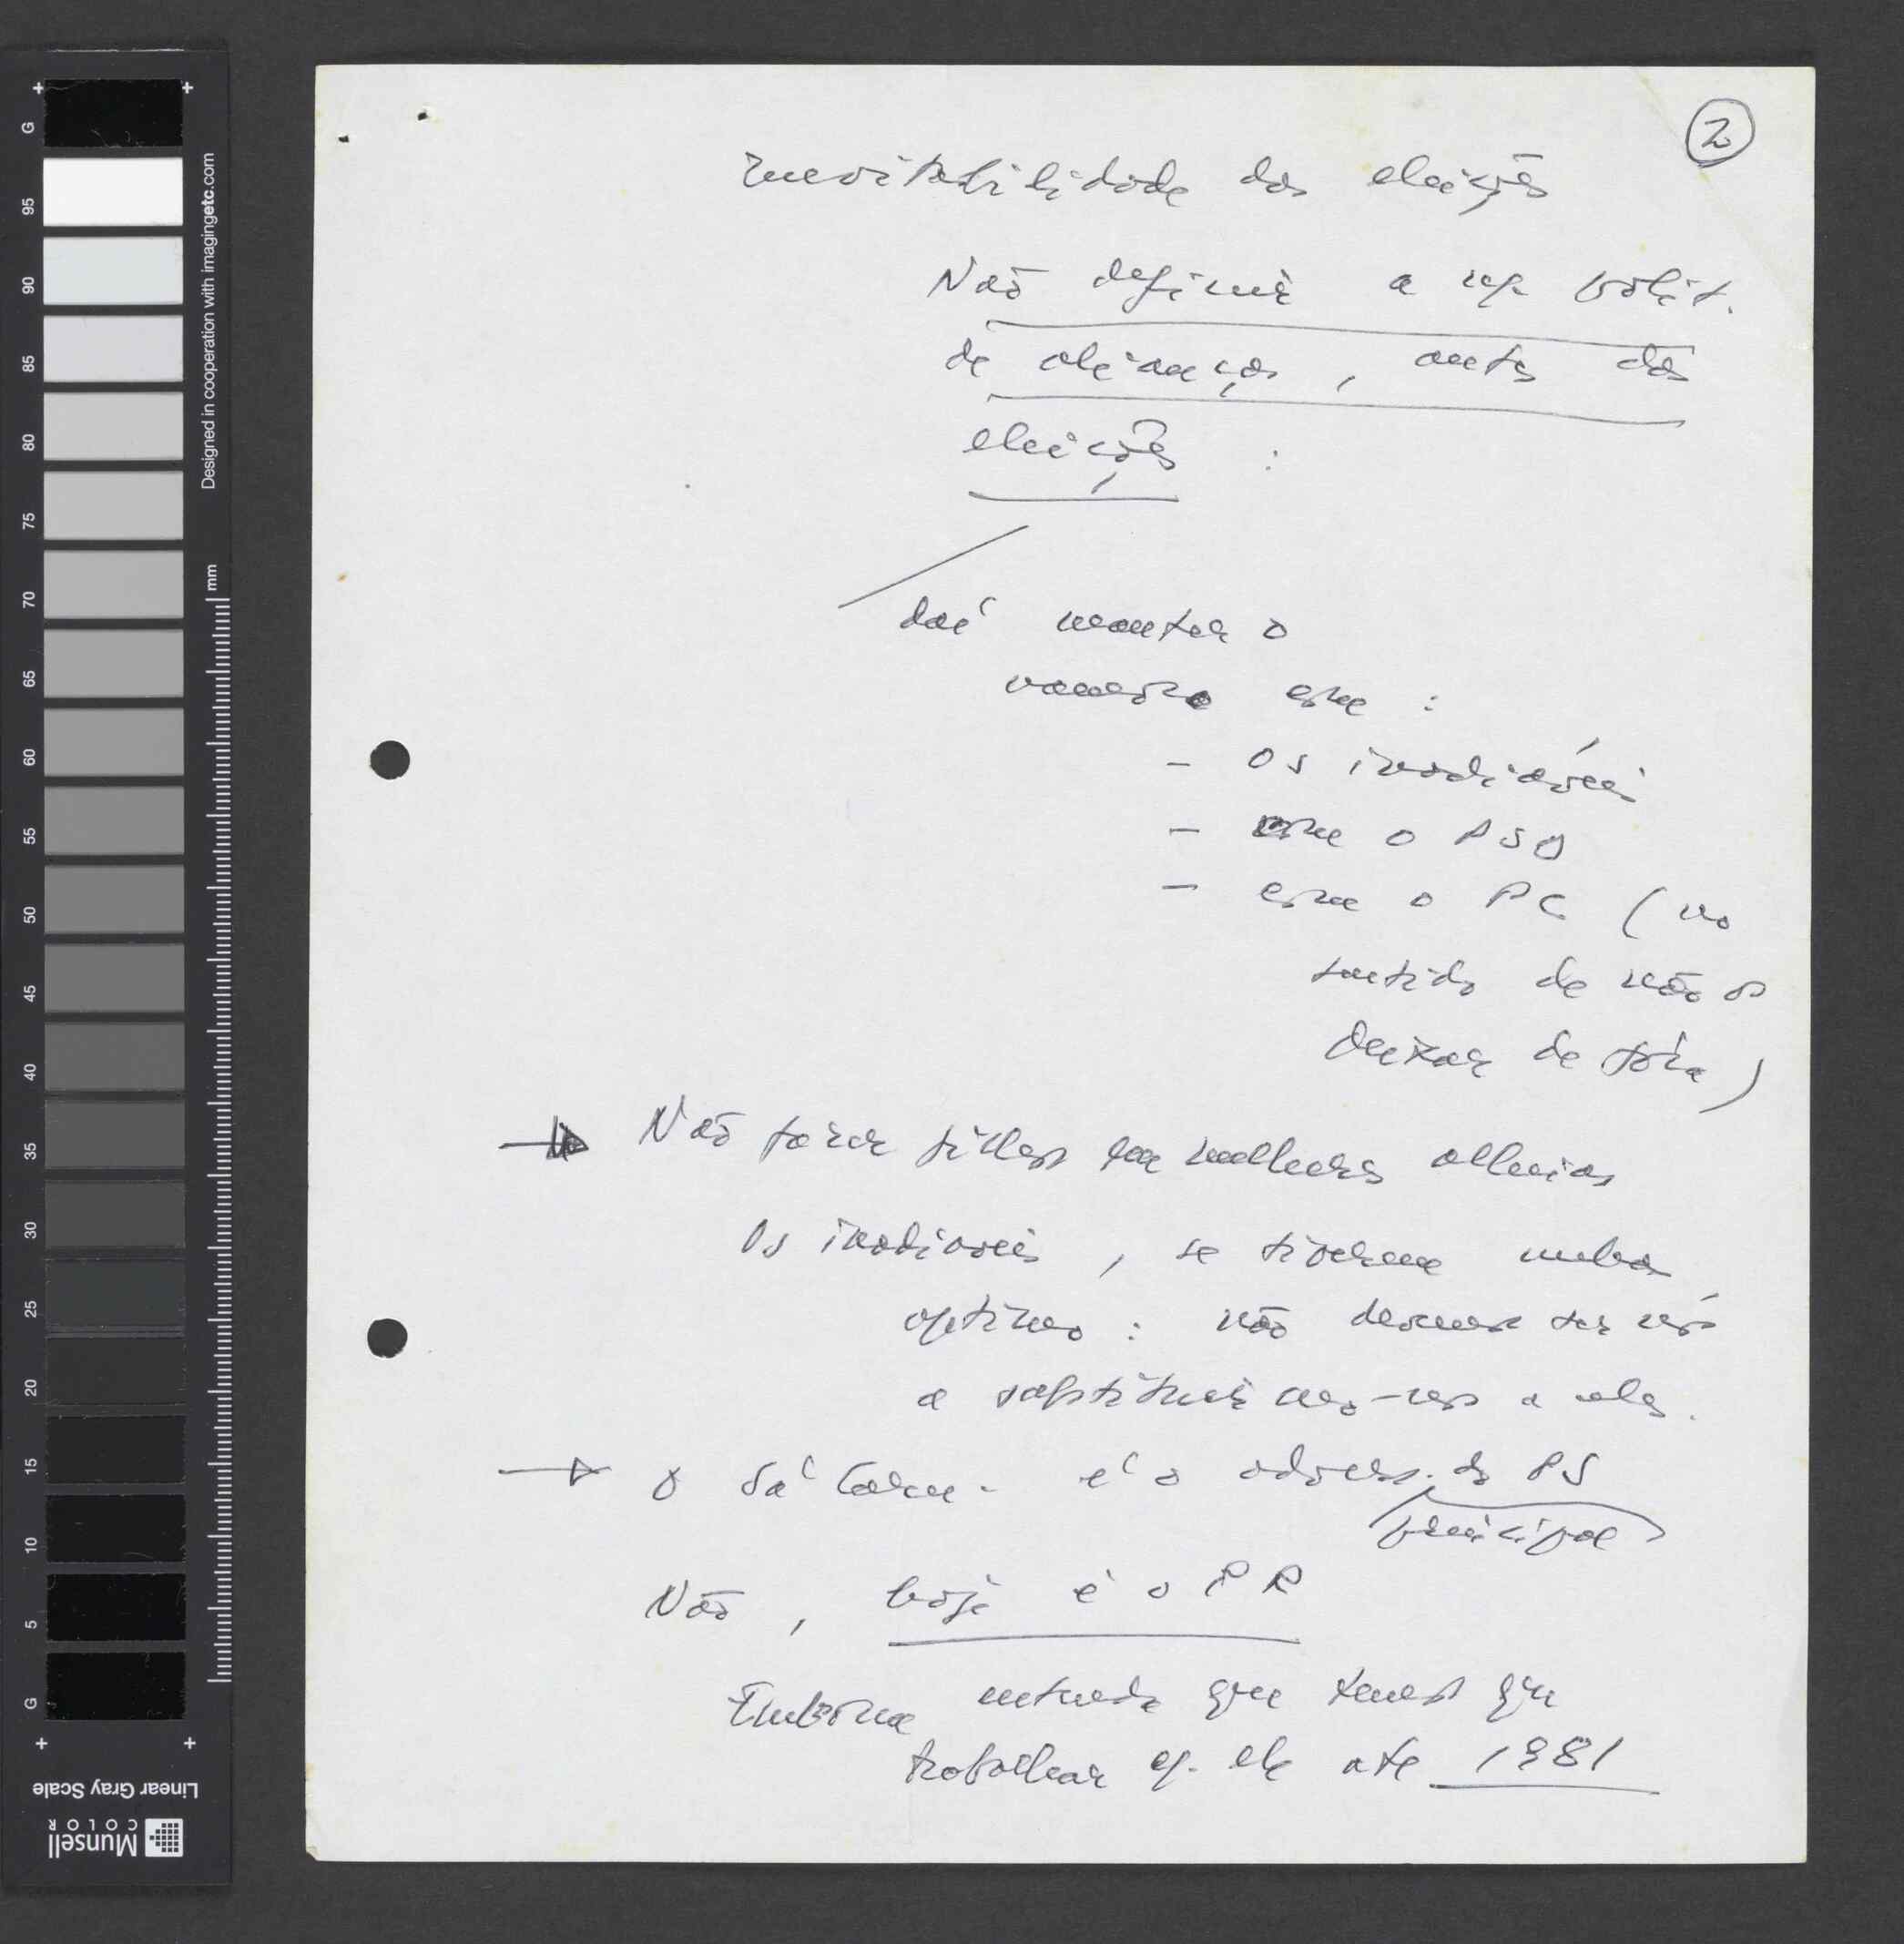 2
Inevitabilidade das eleições
Não definir a nª polít.
de alianças, antes das
eleições :
daí manter o
namoro com :
- os inadiáveis
- com o PSD
- com o PC (no
sentido de não o
deixar de fora)
Não fazer filhos em mulheres alheias
Os inadiáveis, se tiverem
óptimo : não devemos ser nós
a substituirmo-nos a eles.
O Sá Carn. é o advers. do PS
principal
Não, hoje é o PR
Embora entenda que temos que
trabalhar c/. ele até 1981
G 95 90 85 80 75 70 65 60 55 50 45 40 35 30 25 20 15 10 5 G
Designed in cooperation with imagingetc.com
mm
Linear Gray Scale
Munsell
COLOR